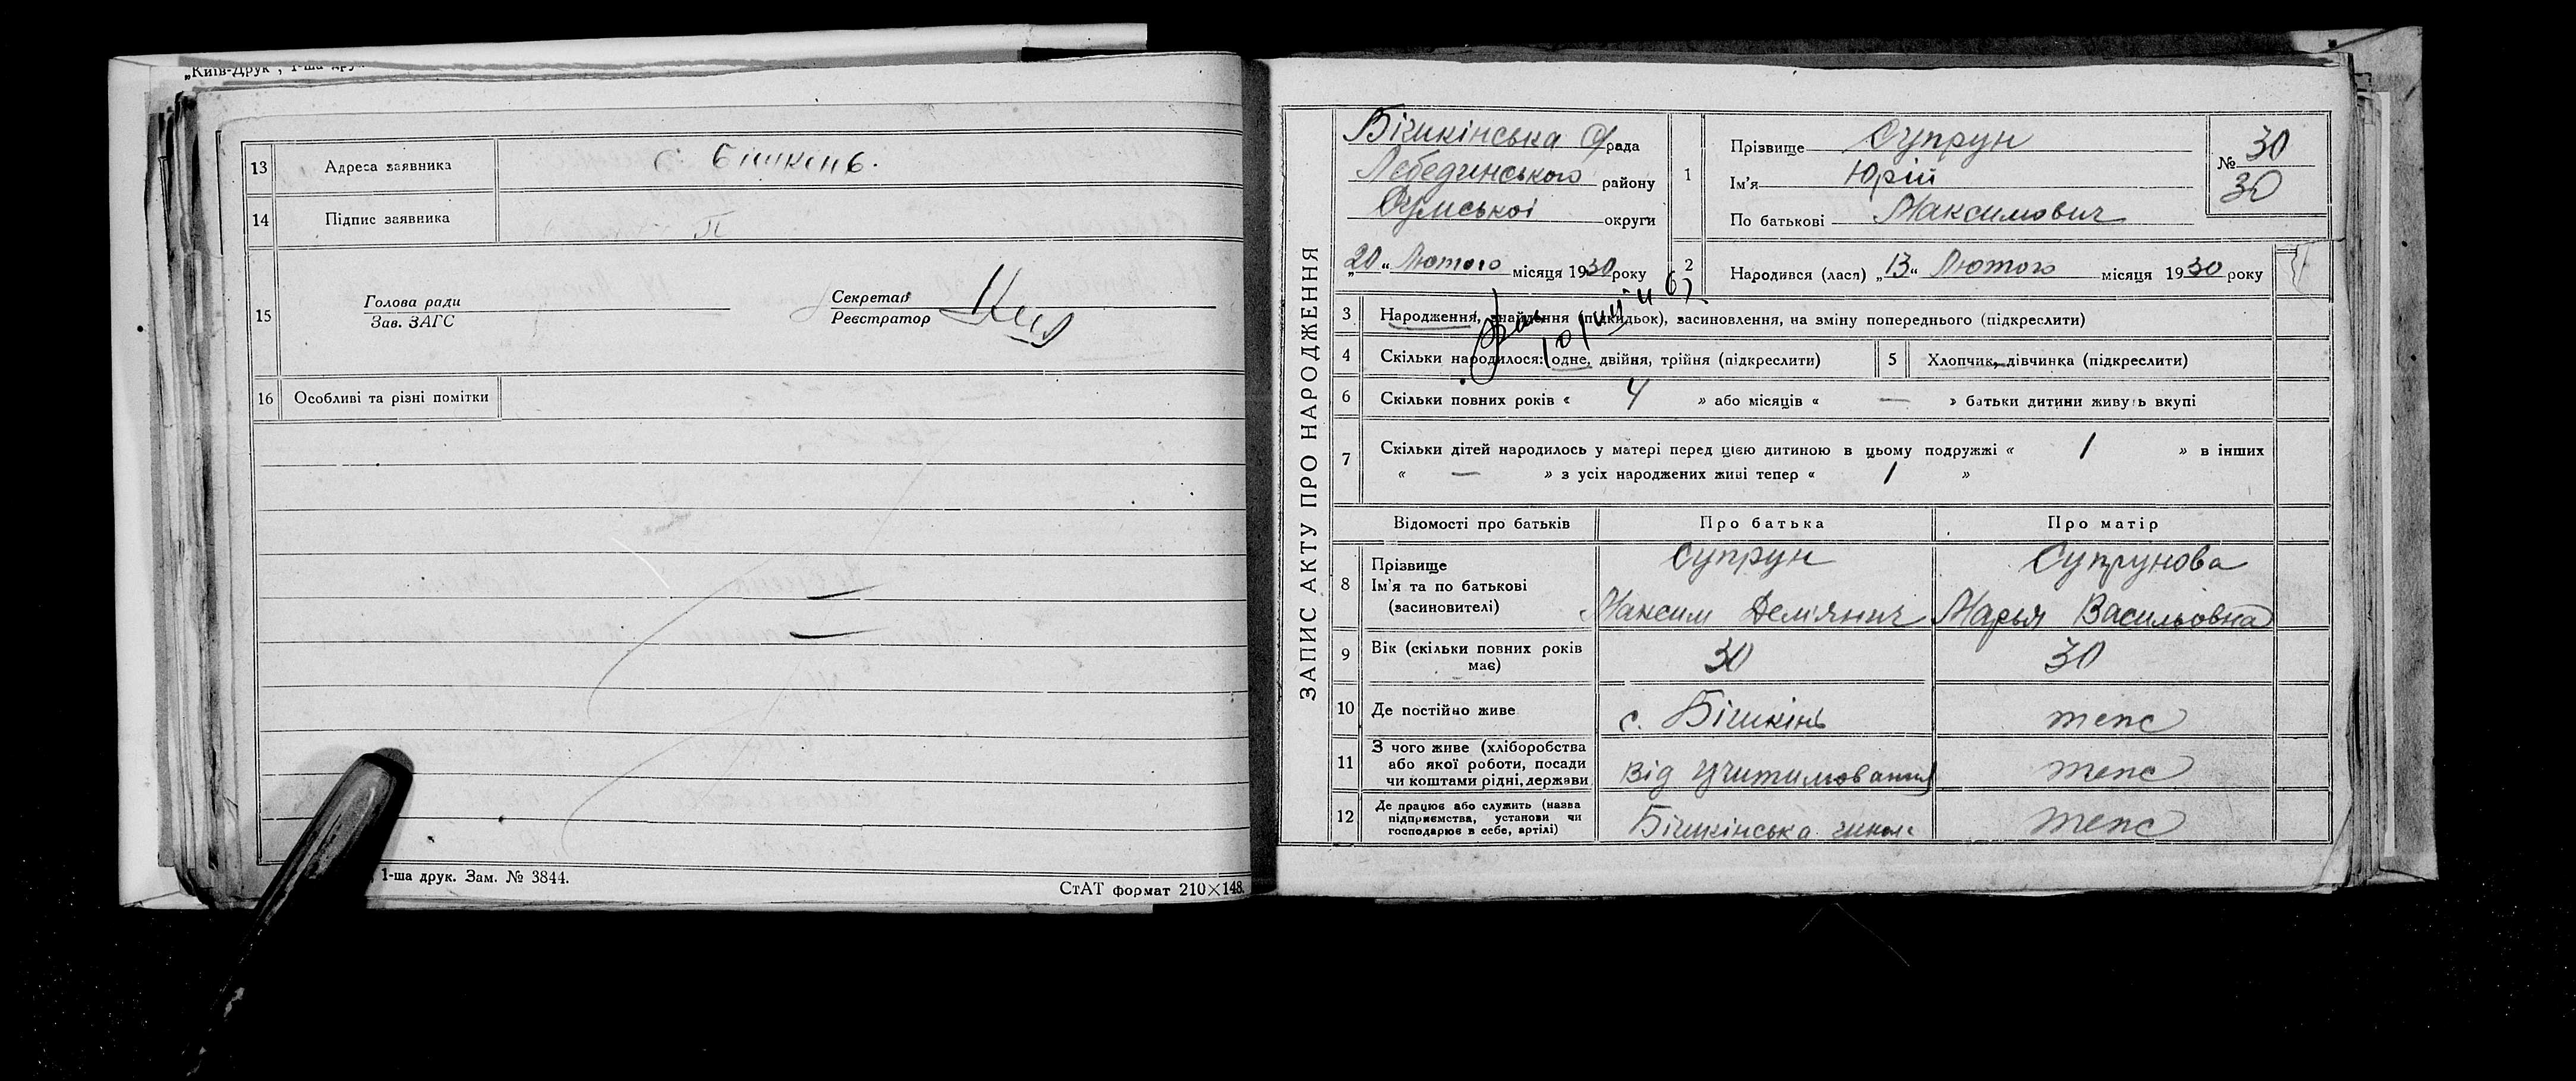 „Київ-Друк", 1-ша дру
13 Адреса заявника с Бишкень.
14 Підпис заявника
15 Голова ради
Зав. ЗАГС
Секретар
Реєстратор
16 Особливі та різні помітки
1-ша друк. Зам. № 3844.
СтАТ формат 210×148.
ЗАПИС АКТУ ПРО НАРОДЖЕННЯ
Бішкінська С/рада
Лебединського району
Сумської округи
„20" Лютого місяця 1930 року
1 Прізвище Супрун
Ім'я Юрій
По батькові Максимович
№ 30
30
2 Народився (лася) „13" Лютого місяця 1930 року
3 Народження, знайдення (підкидьок), засиновлення, на зміну попереднього (підкреслити)
4 Скільки народилося: одне, двійня, трійня (підкреслити) 5 Хлопчик, дівчинка (підкреслити)
6 Скільки повних років « 4 » або місяців « — » батьки дитини живуть вкупі
7 Скільки дітей народилось у матері перед цією дитиною в цьому подружжі « 1 » в інших
« — » з усіх народжених живі тепер « 1 »
Відомості про батьків Про батька Про матір
8 Прізвище Супрун Супрунова
Ім'я та по батькові
(засиновителі) Максим Дем'янич Марья Васильовна
9 Вік (скільки повних років має) 30 30
10 Де постійно живе с. Бішкінь теж
11 З чого живе (хліборобства
або якої роботи, посади
чи коштами рідні, держави від учителювання теж
12 Де працює або служить (назва
підприємства, установи чи
господарює в себе, артілі) Бішкінська школа теж